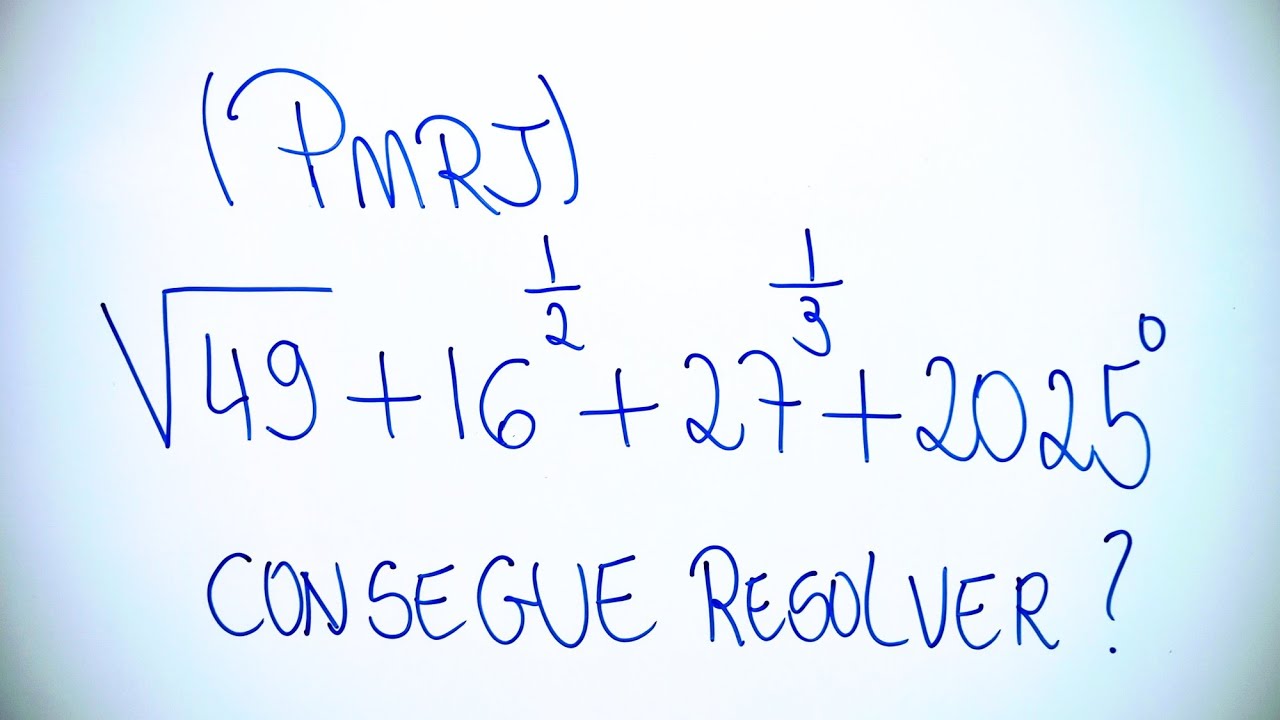 (PMRJ)
√49 + 16^(1/2) + 27^(1/3) + 2025^0
CONSEGUE RESOLVER?